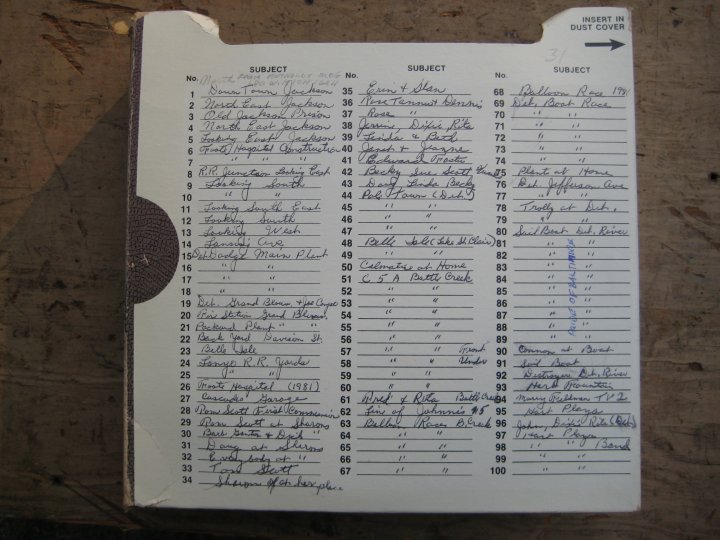 INSERT IN
DUST COVER
31
SUBJECT
No.
1 Down Town Jackson
2 North East Jackson
3 Old Jackson Prison
4 North East Jackson
5 Looking East Jackson
6 Foote Hospital Construction
7 " " "
8 R.R. Junction Looking East
9 Looking South
10 " "
11 Looking South East
12 Looking South
13 Looking West
14 Lansing Ave
15 Det Dodge Main Plant
16 " "
17 " "
18 " "
19 Det. Grand Blvd.
20 Fire Station Grand Blvd.
21 Packard Plant " "
22 Back Yard Davison St.
23 Belle Isle
24 R.R. Yards
25 " "
26 Foote Hospital (1981)
27 Cascades Garage
28 Tom Scott First Communion
29 Tom Scott at Sharons
30 Barb & Dick "
31 Doug at Sharons
32 Everybody at "
33 Tom Scott
34 Sharon at her place
SUBJECT
No.
35 Erin & Stan
36 Rose Tammie & Dennis
37 Rose "
38 Dixie, Rita
39 Linda & Bob
40
41 Edward Foote
42 Becky Sue Scott
43 Doug Linda Becky
44 Pole Town (Det.)
45 " "
46 " "
47 " "
48 Belle Isle (Lake St. Clair)
49 " "
50 at Home
51 C 5 A Battle Creek
52 "
53 "
54 "
55 "
56 "
57 " " Front
58 " " Under
59 "
60 "
61 Fred & Rita Battle Creek
62 of Johnnie #5
63 Balloon Races B. Creek
64 " "
65 " "
66 " "
67 " "
SUBJECT
No.
68 Balloon Race 1981
69 Det. Boat Race
70 " "
71 " "
72 " "
73 " "
74 " "
75 Plant at Home
76 Det. Jefferson Ave
77 " "
78 Trolly at Det.
79 " "
80 Sail Boat Det. River
81 " "
82 " "
83 " "
84 " "
85 " "
86 " "
87 " "
88 " "
89 " "
PRIDE OF BALTIMORE
90 Cannon at Boat
91 Sail Boat
92 Destroyer Det. River
93 Herb Fountain
94 Marv Fellman TV 2
95 Hart Plaza
96 John, Dixie Rita (Det)
97 Hart Plaza
98 " " Band
99 " "
100 " "